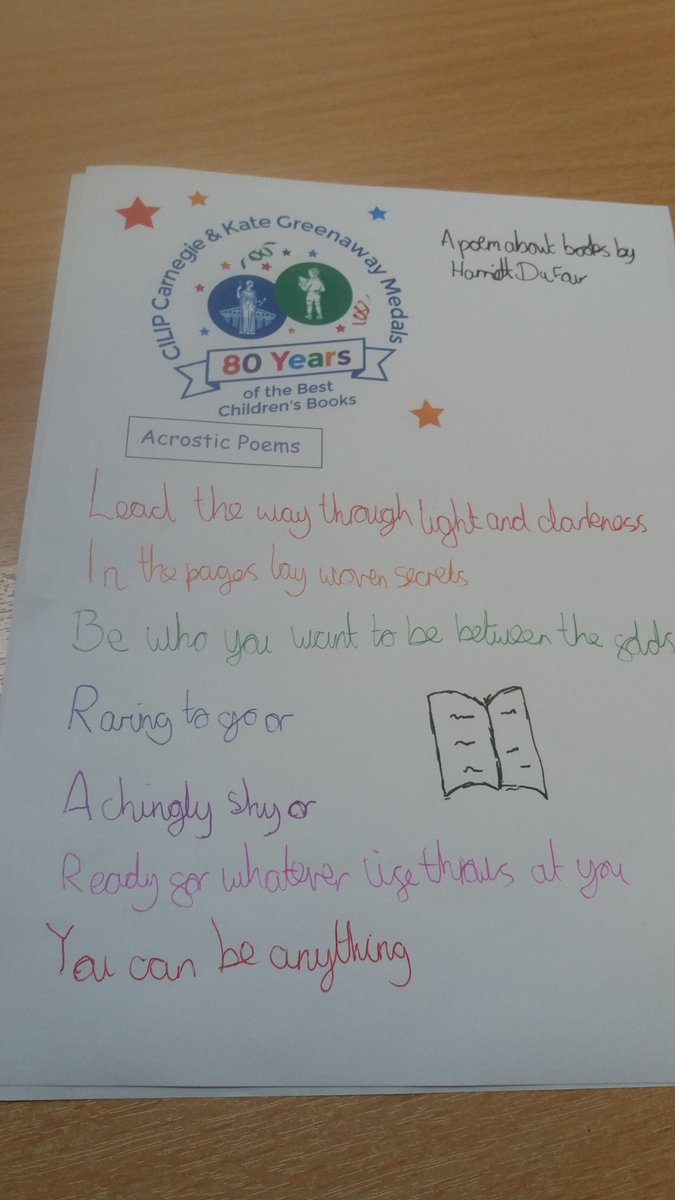 CILIP Carnegie & Kate Greenaway Medals
80 Years
of the Best
Children's Books
A poem about books by
Harriett DuFour
Acrostic Poems
Lead the way through light and darkness
In the pages lay woven secrets
Be who you want to be between the folds
Raring to go or
Achingly shy or
Ready for whatever life throws at you
You can be anything